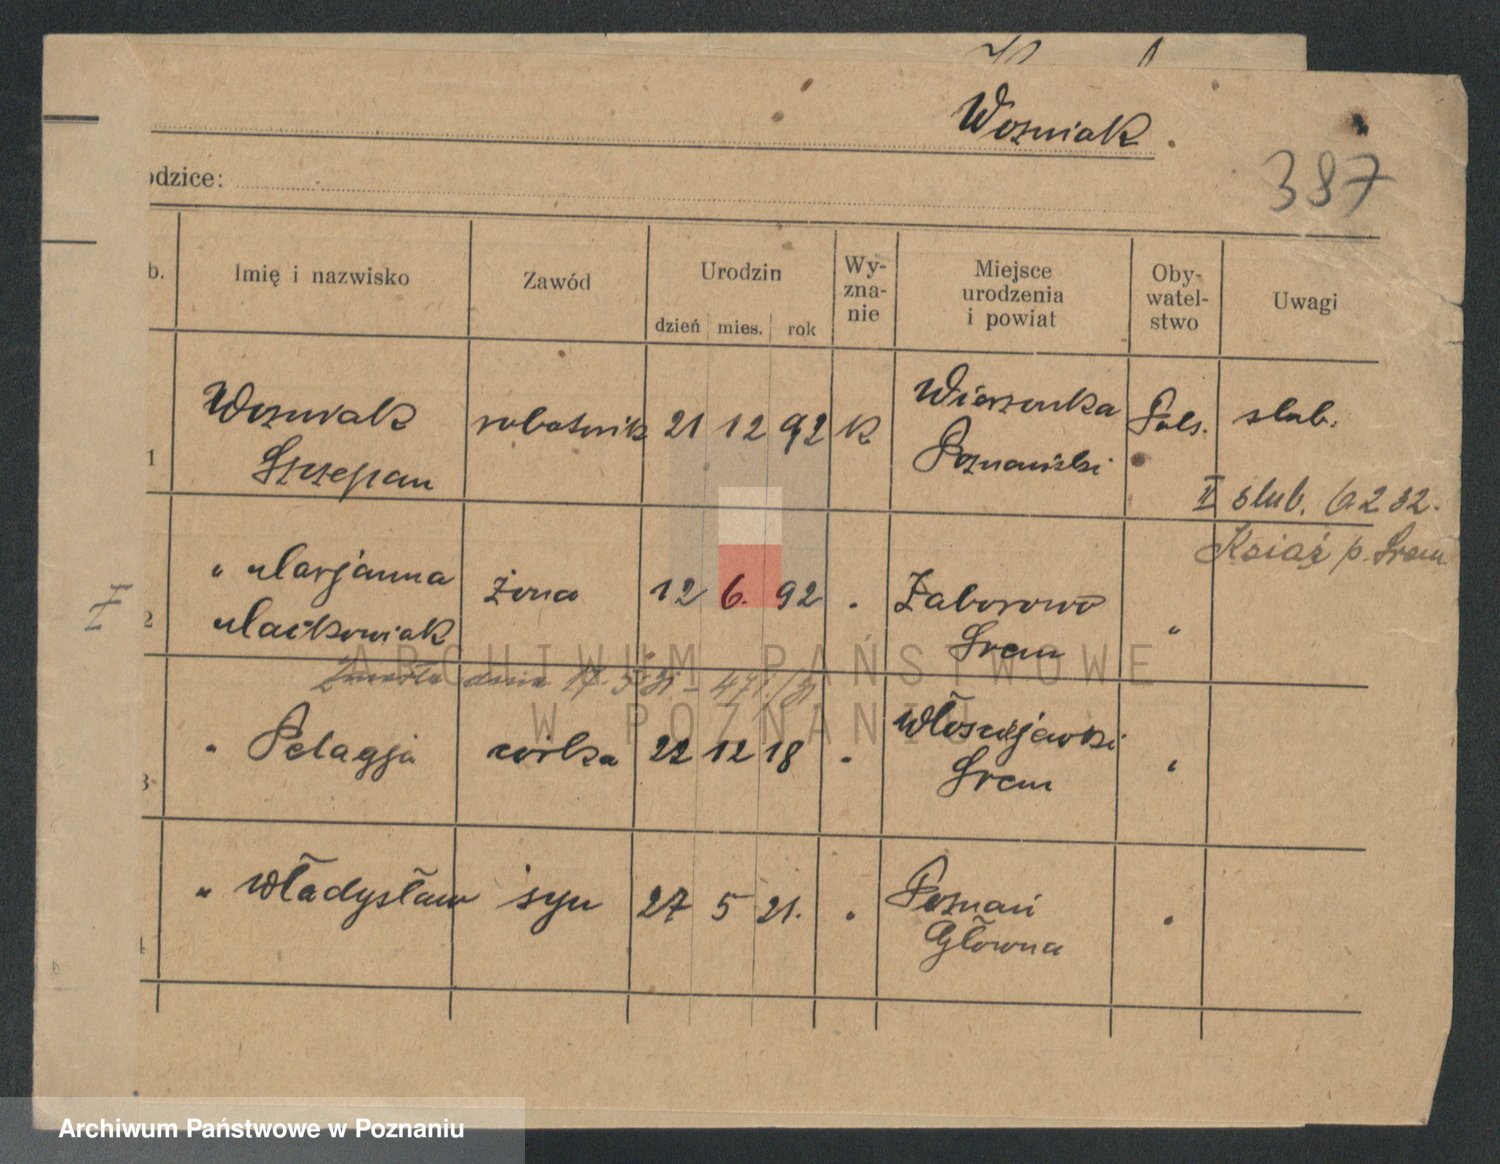 Wozniak.
387
odzice:
b. Imię i nazwisko Zawód Urodzin Wy-zna-nie Miejsce urodzenia i powiat Oby-watel-stwo Uwagi
dzień mies. rok
1 Wozniak Szczepan robotnik 21 12 92 k Wierzonka Poznański Pols. slub.
II slub. 6.2 32.
Książ p. Srem
2 " Marjanna Maćkowiak żona 12 6. 92 " Zaborowo Srem "
Zmarła dnia 17. 5 31
3 " Pelagja córka 22 12 18 " Włościejewki Srem "
4 " Władysław syn 27 5 21. " Poznań Główna "
ARCHIWUM PAŃSTWOWE
W POZNANIU
Archiwum Państwowe w Poznaniu